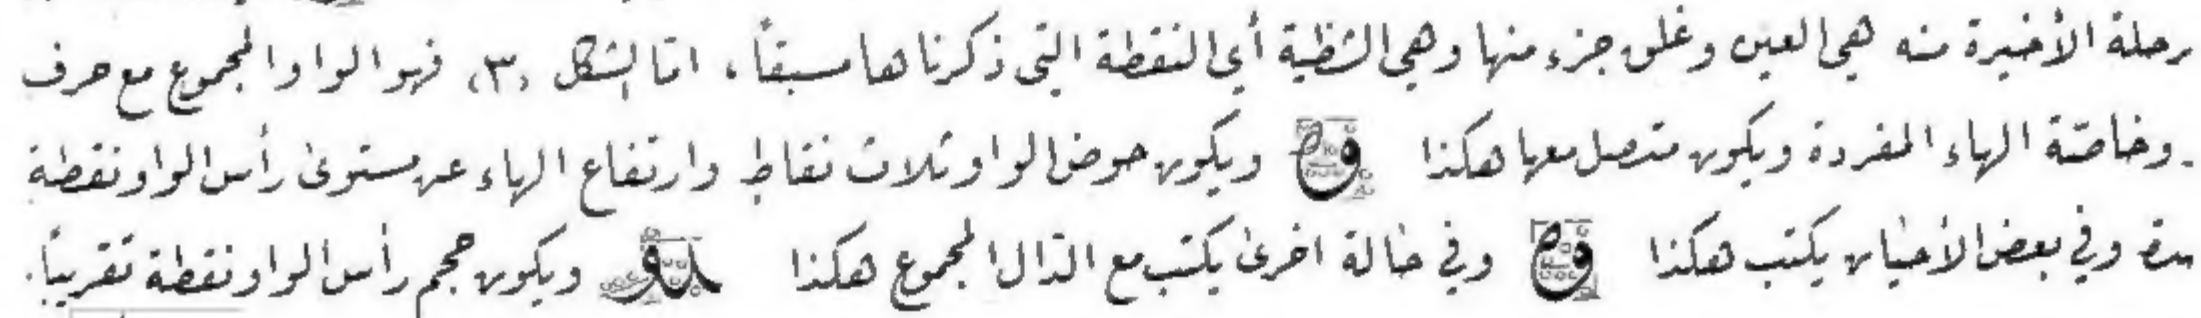 رحلة الأخيرة منه هي العين وغلق جزء منها وهي الشظية أي النقطة التي ذكرناها مسبقاً، امّا الشكل (٣) فهو الواو المجموع مع حرف
وخاصّة الهاء المفردة ويكون متصل معها هكذا ويكون حوض الواو ثلاث نقاط وارتفاع الهاء عن مستوى رأس الواو نقطة
دة وفي بعض الأحيان يكتب هكذا وفي حالة اخرى يكتب مع الدّال المجموع هكذا ويكون حجم رأس الواو نقطة تقريباً.